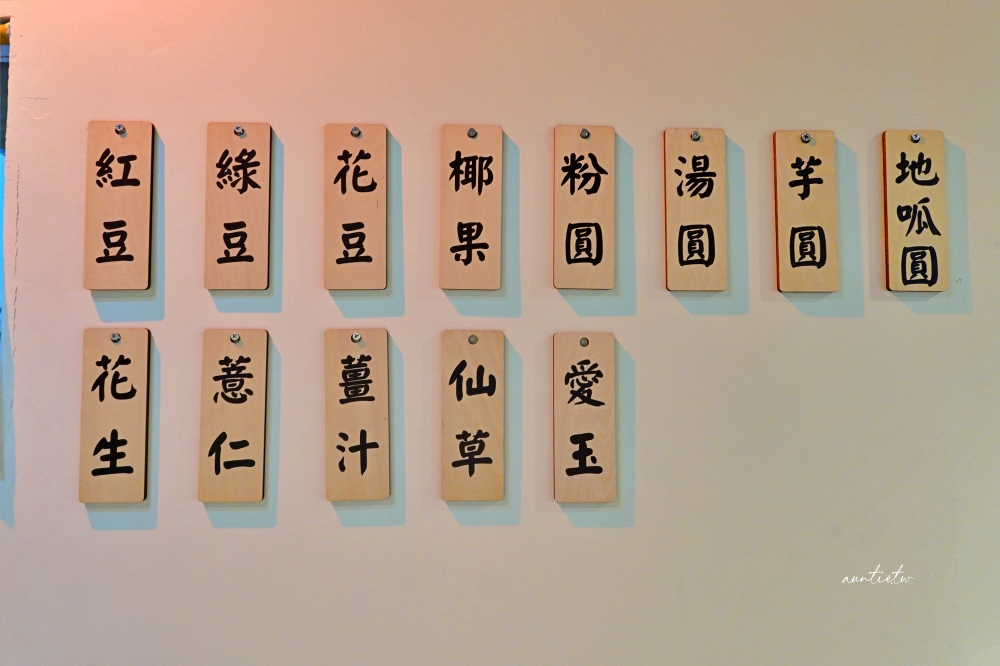 紅豆
綠豆
花豆
椰果
粉圓
湯圓
芋圓
地呱圓
花生
薏仁
薑汁
仙草
愛玉
auntietw